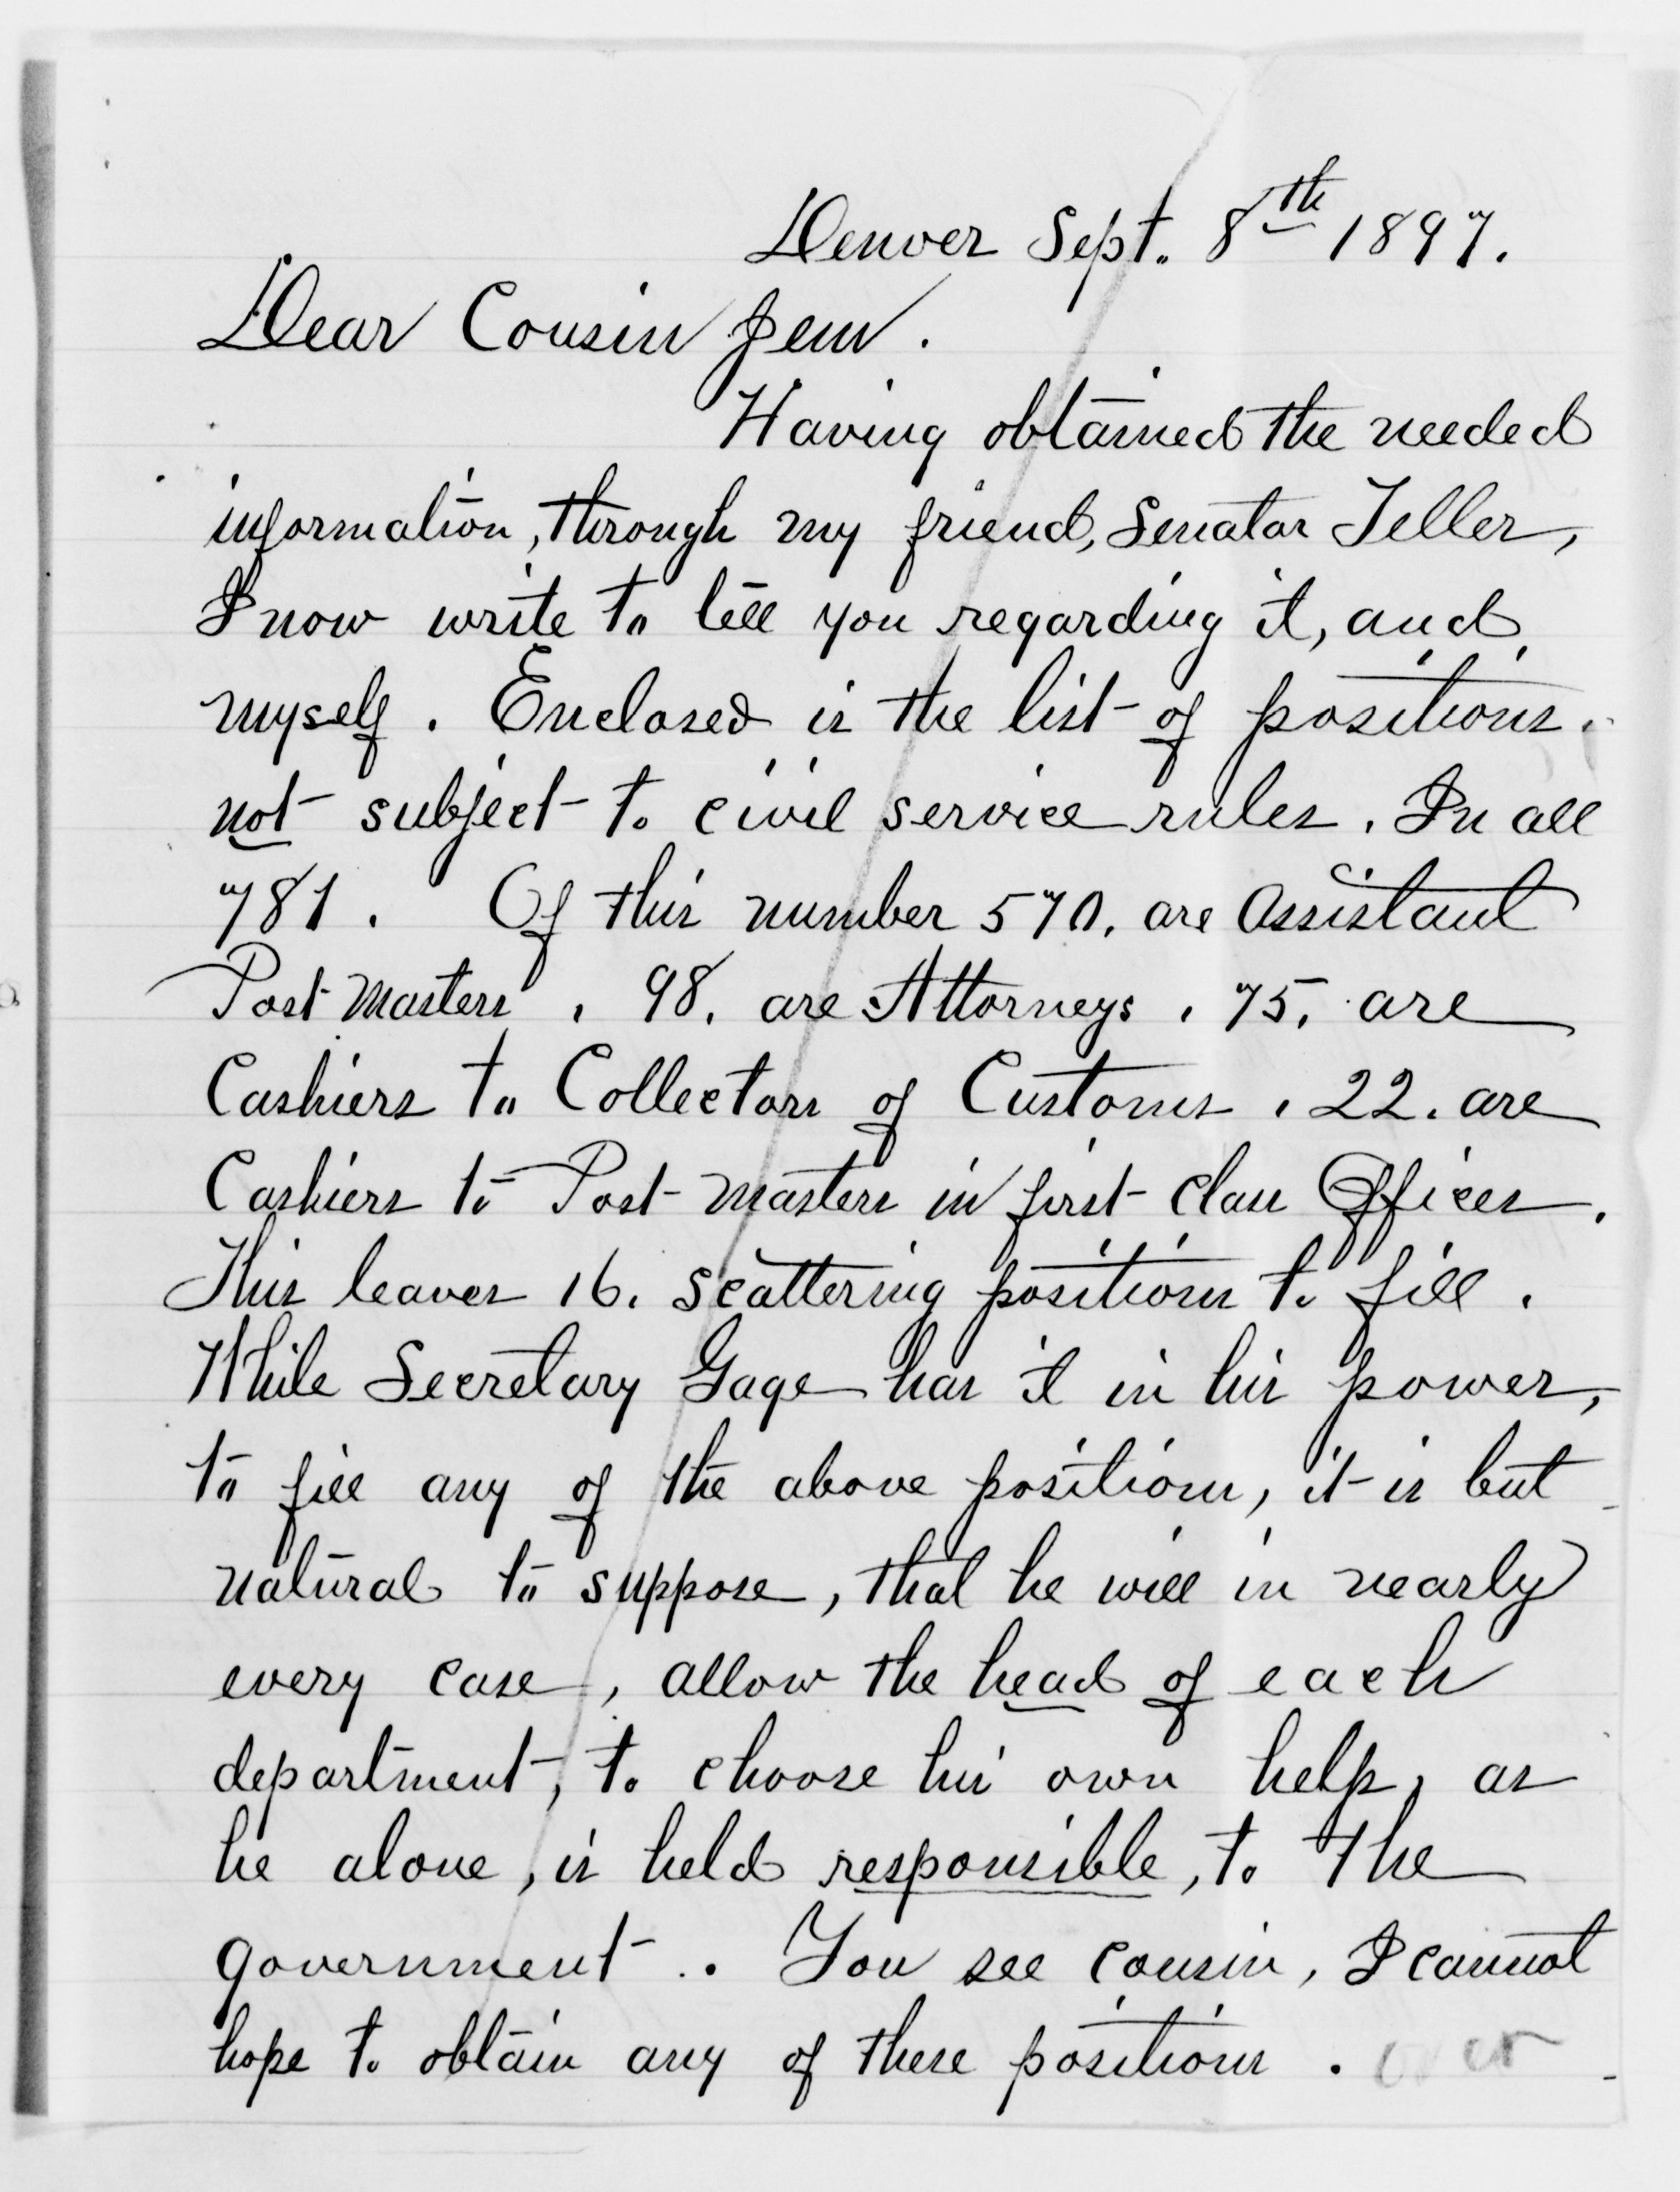 Denver Sept. 8th 1897.
Dear Cousin Jenn.
Having obtained the needed
information, through my friend, Senator Teller,
I now write to tell you regarding it, and
myself. Enclosed is the list of positions
not subject to civil service rules. In all
781. Of this number 570. are Assistant
Post Masters, 98. are Attorneys, 75. are
Cashiers to Collectors of Customs, 22. are
Cashiers to Post Masters in first class Offices.
This leaves 16. scattering positions to fill.
While Secretary Gage has it in his power,
to fill any of the above positions, it is but
natural to suppose, that he will in nearly
every case, allow the head of each
department, to choose his own help, as
he alone, is held responsible, to the
government. You see cousin, I cannot
hope to obtain any of these positions. over